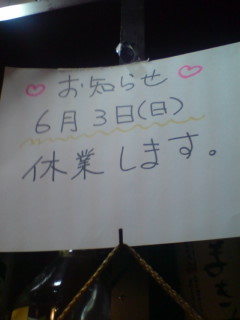 お知らせ
6月3日(日)
休業します。